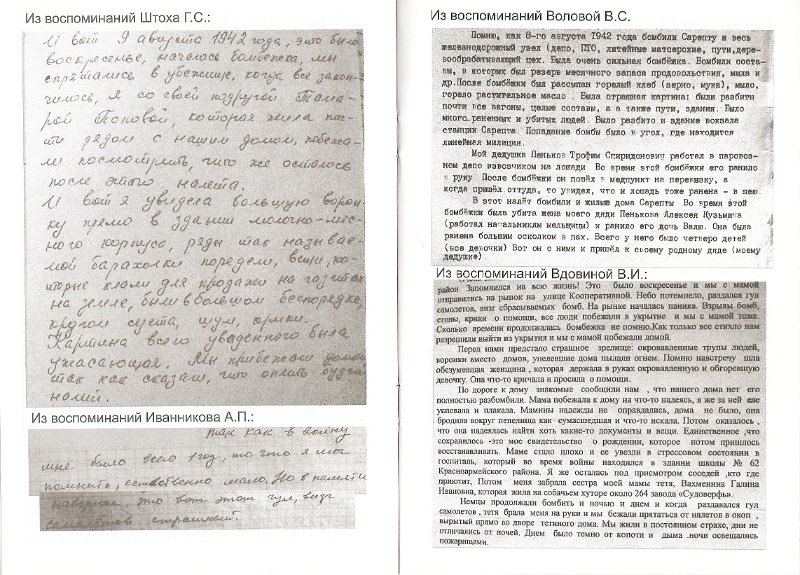 Из воспоминаний Штоха Г.С.:
И вот 9 августа 1942 года, это было
воскресенье, началась бомбежка, мы
спрятались в убежище, когда все закон-
чилось, я со своей подругой Тама-
рой Поповой, которая жила поч-
ти рядом с нашим домом, побежа-
ли посмотреть, что же осталось
после этого налета.
И вот я увидела большую ворон-
ку прямо в здании молочно-мяс-
ного корпуса, ряды так называе-
мой барахолки поредели, вещи, ко-
торые клали для продажи на газетах
на земле, были в большом беспорядке,
кругом суета, шум, крики.
Картина всего увиденного была
ужасающая. Мы прибежали домой
так как сказали, что опять будет
налет.
Из воспоминаний Иванникова А.П.:
так как в войну
мне было всего 1 год, то что я мог
помнить, естественно мало. Но в памяти
это вот этот гул,
самолетов страшный.
Из воспоминаний Воловой В.С.
Помню, как 8-го августа 1942 года бомбили Сарепту и весь
железнодорожный узел (депо, ПТО, литейные матсерские, пути,дере-
вообрабатывающий цех. Была очень сильная бомбёжка. Бомбили соста-
вы, в которых был резерв месячного запаса продовольствия, мыла и
др.После бомбёжки был рассыпан горелый хлеб (зерно, мука), мыло,
горело растительное масло . Была страшная картина: были разбиты
почти все вагоны, целые составы, а а также пути, здания. Было
много раненных и убитых людей. Было разбито и здание вокзала
станции Сарепта. Попадание бомбы было в угол, где находится
линейная милиция.
Мой дедушка Пеньков Трофим Спиридонович работал в паровоз-
ном депо извозчиком на лошади Во время этой бомбёжки его ранило
в руку После бомбёжки он пошёл в медпункт на перевязку, а
когда пришёл оттуда, то увидел, что и лошадь тоже ранена - в шею
В этот налёт бомбили и жилые дома Сарепты Во время этой
бомбёжки была убита жена моего дяди Пенькова Алексея Кузьмича
(работал начальником мельницы) и ранило его дочь Валю. Она была
ранена большим осколком в пах. Всего у него было четверо детей
(все девочки) Вот он с ними и пришёл к своему родному дяде (моему
дедушке)
Из воспоминаний Вдовиной В.И.:
район. Запомнился на всю жизнь! Это было воскресенье и мы с мамой
отправились на рынок на улице Кооперативной. Небо потемнело, раздался гул
самолетов, визг сбрасываемых бомб. На рынке началась паника. Взрывы бомб,
стоны, крики о помощи, все люди побежали в укрытие и мы с мамой тоже.
Сколько времени продолжалась бомбежка не помню.Как только все стихло нам
разрешили выйти из укрытия и мы с мамой побежали домой.
Перед нами предстало страшное зрелище: окровавленные трупы людей,
воронки вместо домов, уцелевшие дома пылали огнем. Помню навстречу шла
обезумевшая женщина , которая держала в руках окровавленную и обгоревшую
девочку. Она что-то кричала и просила о помощи.
По дороге к дому знакомые сообщили нам , что нашего дома нет его
полностью разбомбили. Мама побежала к дому на что-то надеясь, я же за ней еле
успевала и плакала. Мамины надежды не оправдались, дома не было, она
бродила вокруг пепелища как сумасшедшая и что-то искала. Потом оказалось ,
что она надеялась найти хоть какие-то документы и вещи. Единственное ,что
сохранилось -это мое свидетельство о рождении, которое потом пришлось
восстанавливать. Маме стало плохо и ее увезли в стрессовом состоянии в
госпиталь, который во время войны находился в здании школы № 62
Красноармейского района. Я же осталась под присмотром соседей ,кто где
приютит. Потом меня забрала сестра моей мамы тетя, Вахменина Галина
Ивановна, которая жила на собачьем хуторе около 264 завода «Судоверфь».
Немцы продолжали бомбить и ночью и днем и когда раздавался гул
самолетов , тетя брала меня на руки и мы бежали прятаться от налетов в окоп ,
вырытый прямо во дворе тетиного дома. Мы жили в постоянном страхе, дни не
отличались от ночей. Днем было темно от копоти и дыма ,ночи освещались
пожарищами.